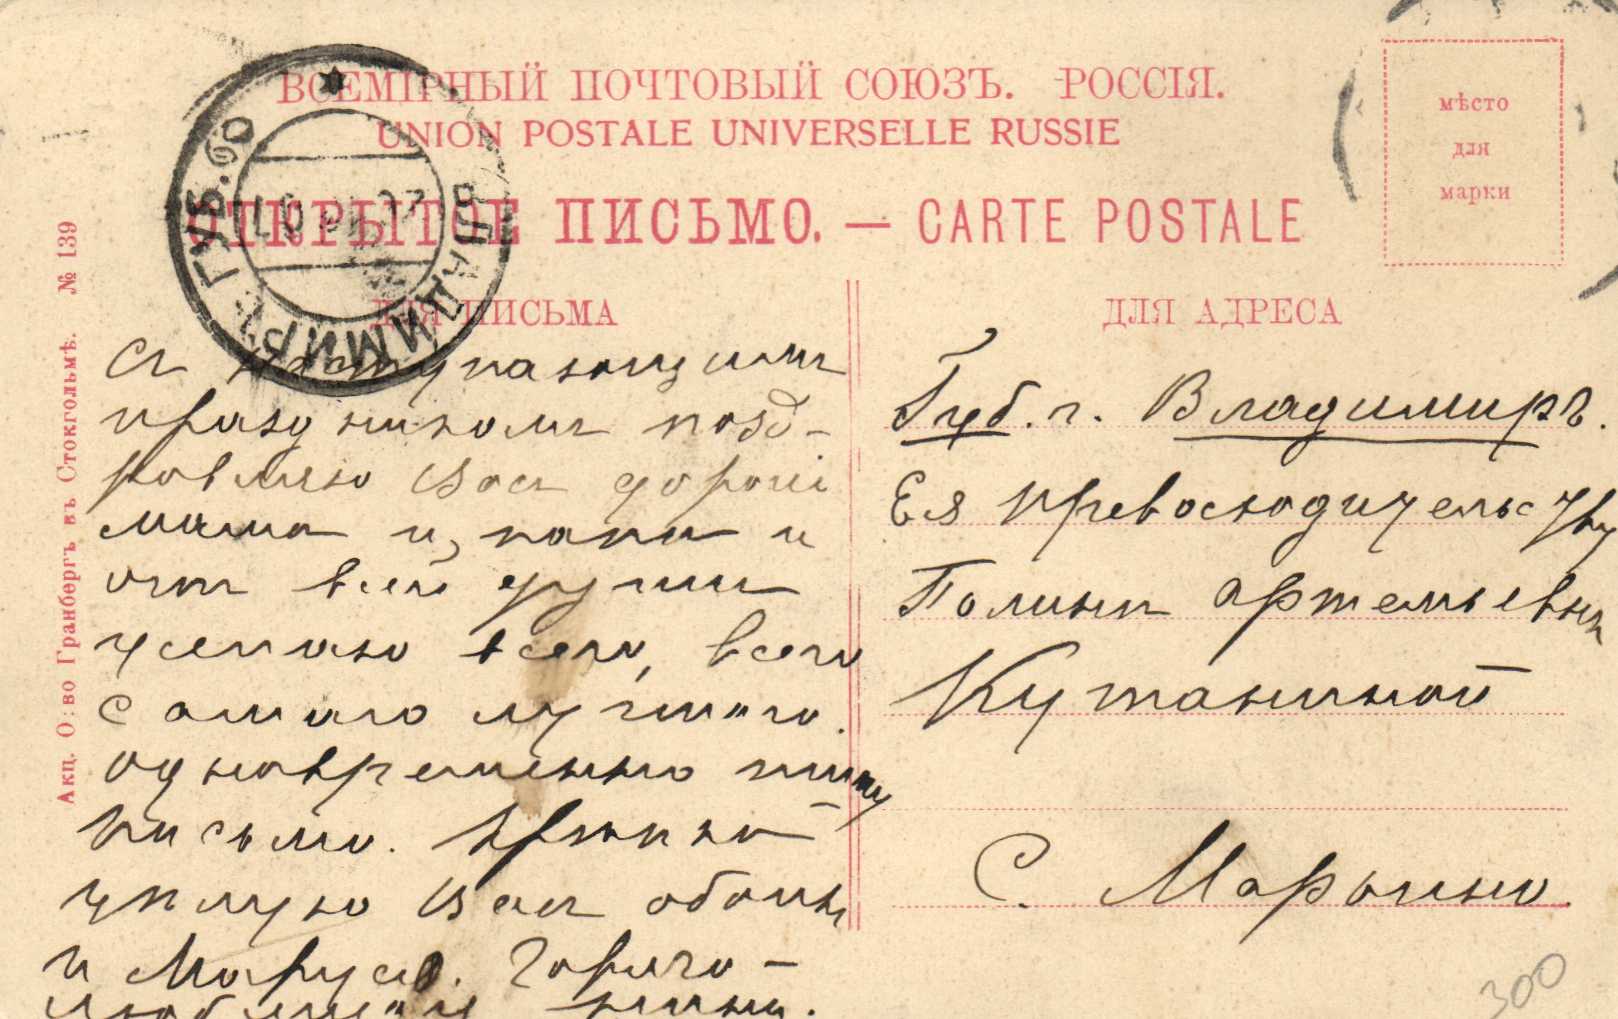 ВСЕМІРНЫЙ ПОЧТОВЫЙ СОЮЗЪ. РОССІЯ.
UNION POSTALE UNIVERSELLE RUSSIE
ОТКРЫТОЕ ПИСЬМО. — CARTE POSTALE
мѣсто
для
марки
ВЛАДИМИРЪ ГУБ.
Акц. О:во Гранбергъ въ Стокгольмѣ. № 139
ДЛЯ ПИСЬМА
Съ наступающимъ
праздникомъ позд-
ровляю Васъ дорогіе
мама и папа и
отъ всей души
желаю всего, всего
самаго лучшаго.
одновременно пишу
письмо. Крѣпко
цѣлую Васъ обоихъ
и Марусю. Горячо-
ДЛЯ АДРЕСА
Губ. г. Владимиръ.
Ея превосходительству
Полинѣ Артемьевнѣ
С. Марьино.
300